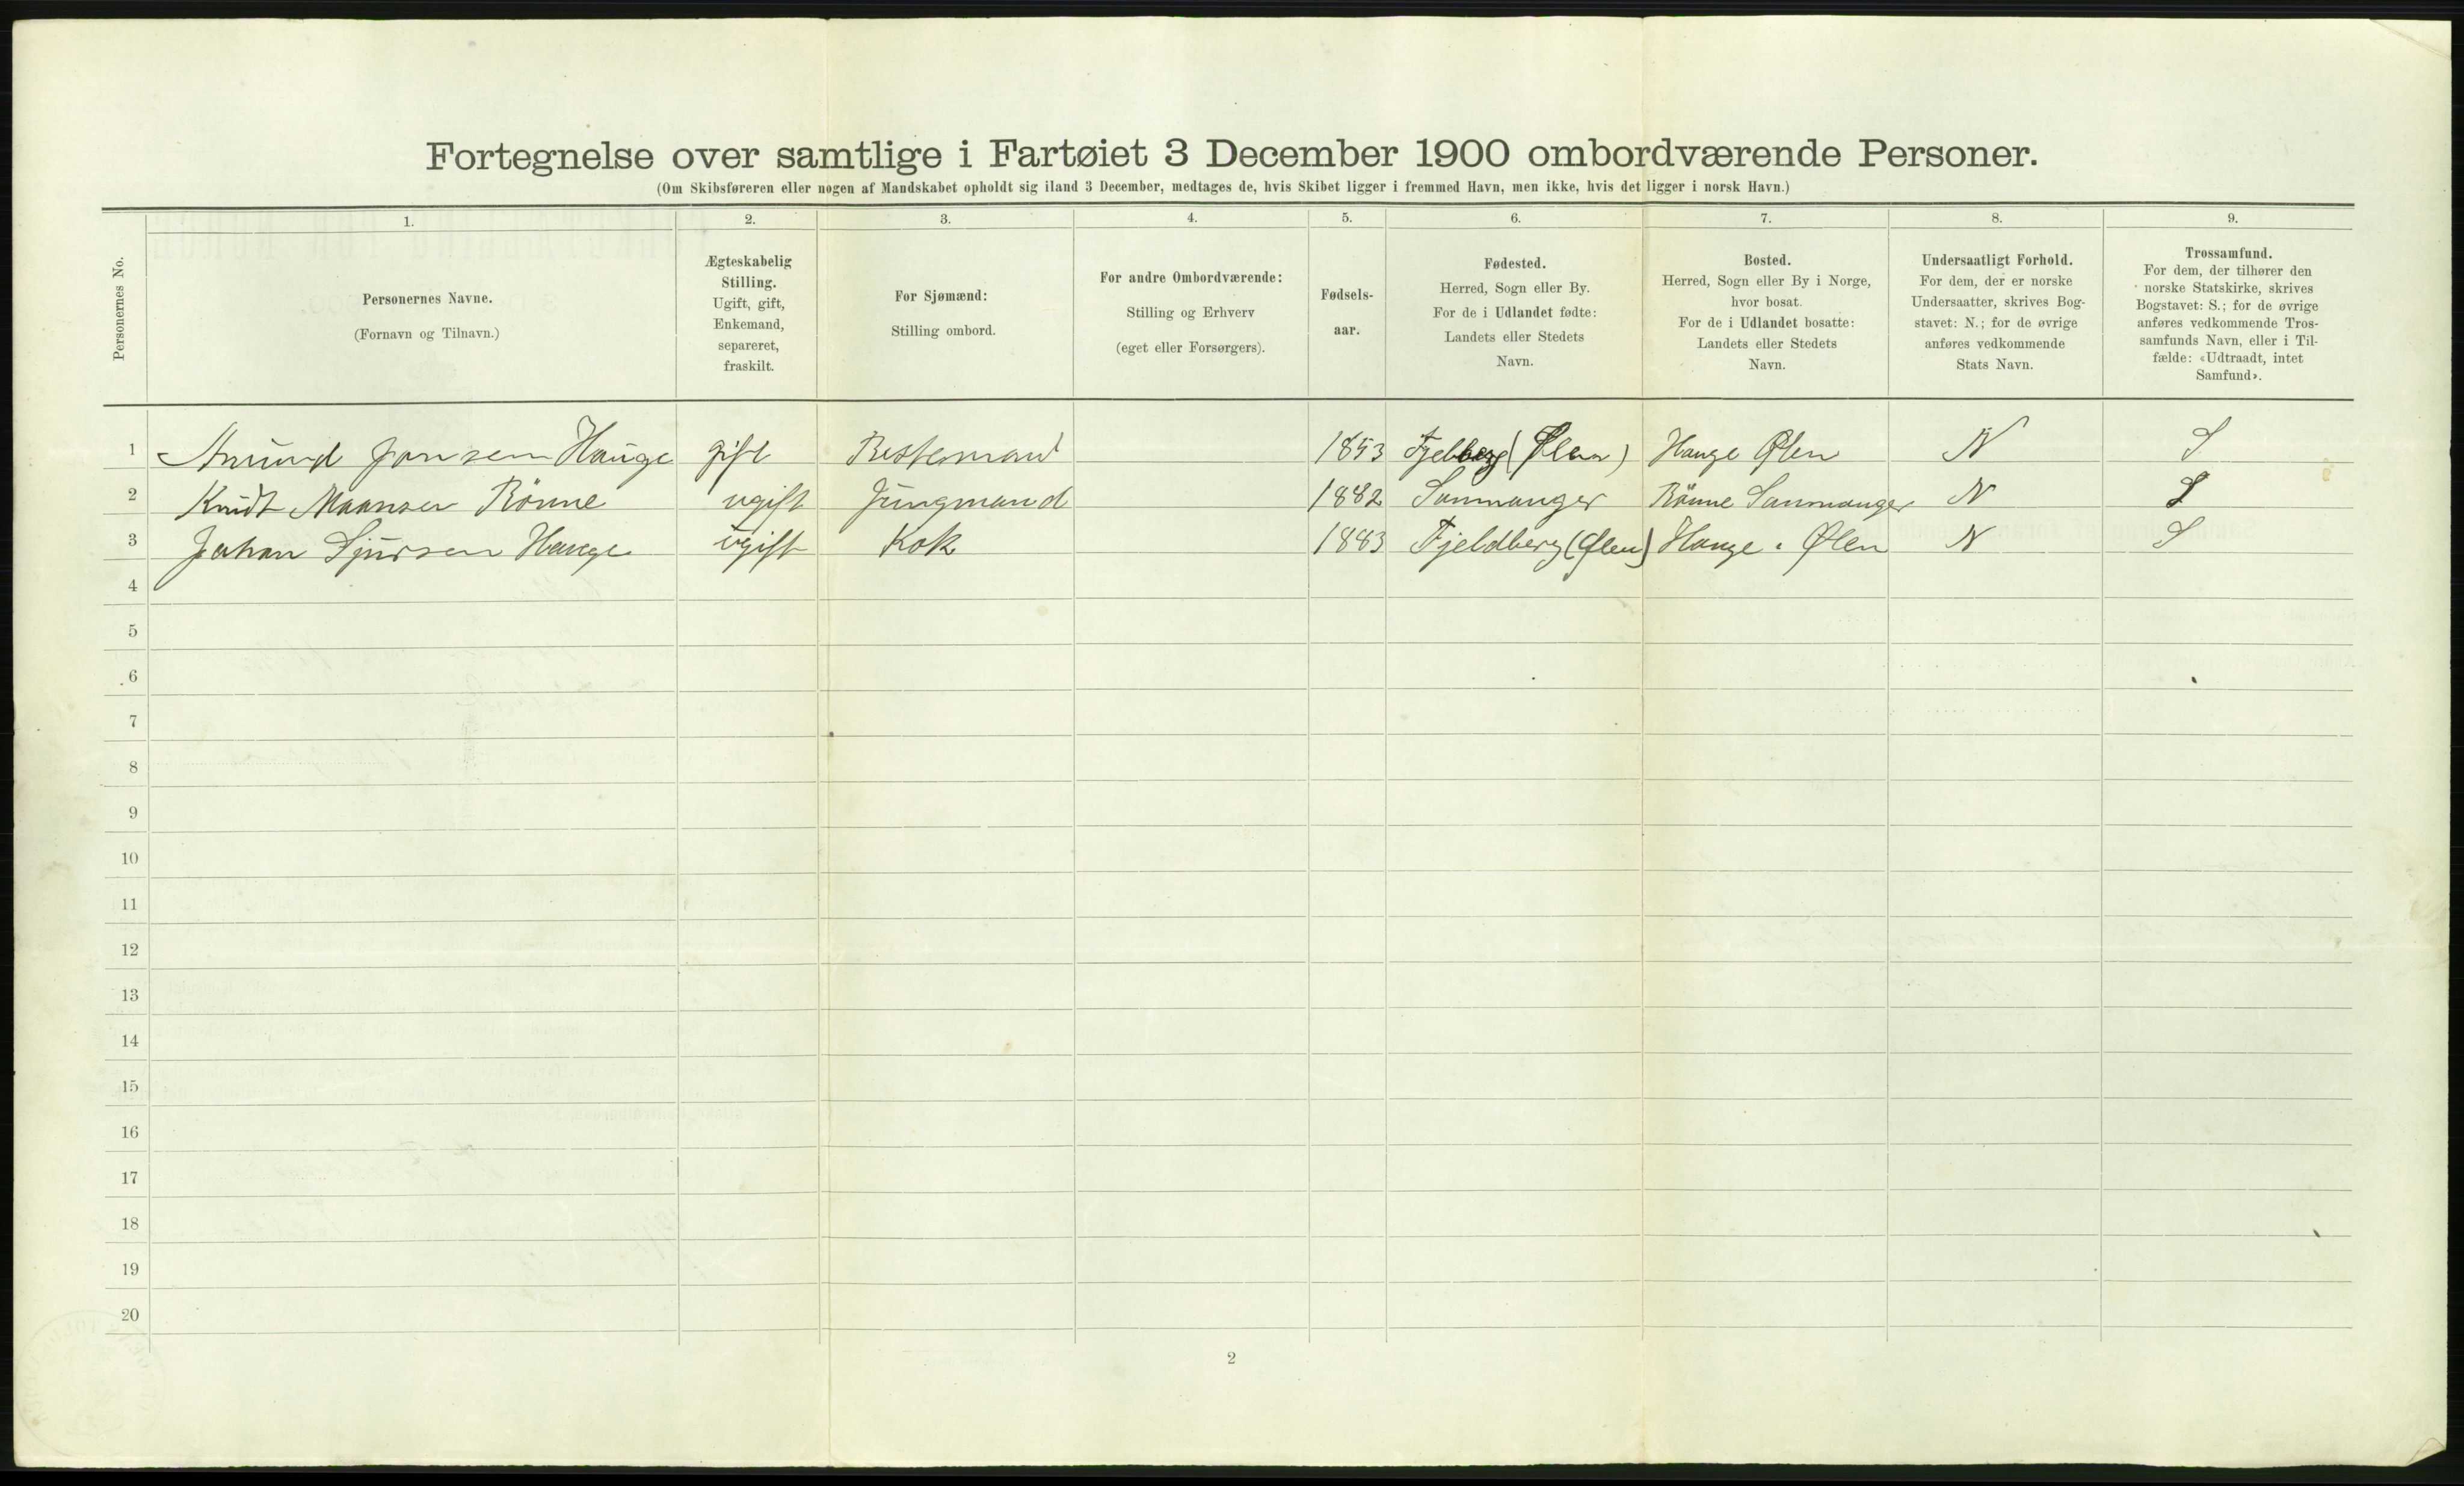 Fortegnelse over samtlige i Fartøiet 3 December 1900 ombordværende Personer.
(Om Skibsføreren eller nogen af Mandskabet opholdt sig iland 3 December, medtages de, hvis Skibet ligger i fremmed Havn, men ikke, hvis det ligger i norsk Havn.)
1. 2. 3. 4. 5. 6. 7. 8. 9.
Personernes No.
Personernes Navne.
(Fornavn og Tilnavn.)
Ægteskabelig
Stilling.
Ugift, gift,
Enkemand,
separeret,
fraskilt.
For Sjømænd:
Stilling ombord.
For andre Ombordværende:
Stilling og Erhverv
(eget eller Forsørgers).
Fødsels-
aar.
Fødested.
Herred, Sogn eller By.
For de i Udlandet fødte:
Landets eller Stedets
Navn.
Bosted.
Herred, Sogn eller By i Norge,
hvor bosat.
For de i Udlandet bosatte:
Landets eller Stedets
Navn.
Undersaatligt Forhold.
For dem, der er norske
Undersaatter, skrives Bog-
stavet: N.; for de øvrige
anføres vedkommende
Stats Navn.
Trossamfund.
For dem, der tilhører den
norske Statskirke, skrives
Bogstavet: S.; for de øvrige
anføres vedkommende Tros-
samfunds Navn, eller i Til-
fælde: «Udtraadt, intet
Samfund».
1 Amund Jonsen Hauge gift Bestemand 1853 Fjelberg (Ølen) Hauge Ølen N S
2 Knudt Maansen Rönne ugift Jungmand 1882 Sammanger Rönne Sammanger N S
3 Johan Sjursen Hauge ugift Kok 1883 Fjeldberg (Ølen) Hauge. Ølen N S
4
5
6
7
8
9
10
11
12
13
14
15
16
17
18
19
20
2